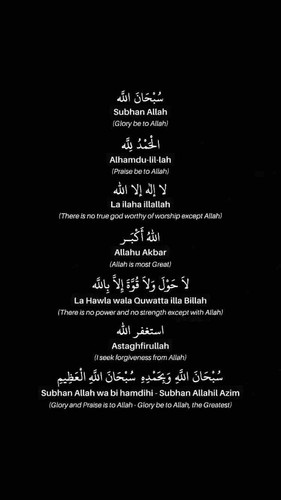 سُبْحَانَ اللَّه
Subhan Allah
(Glory be to Allah)
الْحَمْدُ لِلَّه
Alhamdu-lil-lah
(Praise be to Allah)
لا إله إلا الله
La ilaha illallah
(There is no true god worthy of worship except Allah)
اللهُ أَكْبَـر
Allahu Akbar
(Allah is most Great)
لاَ حَوْلَ وَلاَ قُوَّةَ إِلاَّ بِاللَّه
La Hawla wala Quwatta illa Billah
(There is no power and no strength except with Allah)
استغفر الله
Astaghfirullah
(I seek forgiveness from Allah)
سُبْحَانَ اللَّهِ وَبِحَمْدِهِ سُبْحَانَ اللَّهِ الْعَظِيمِ
Subhan Allah wa bi hamdihi - Subhan Allahil Azim
(Glory and Praise is to Allah - Glory be to Allah, the Greatest)